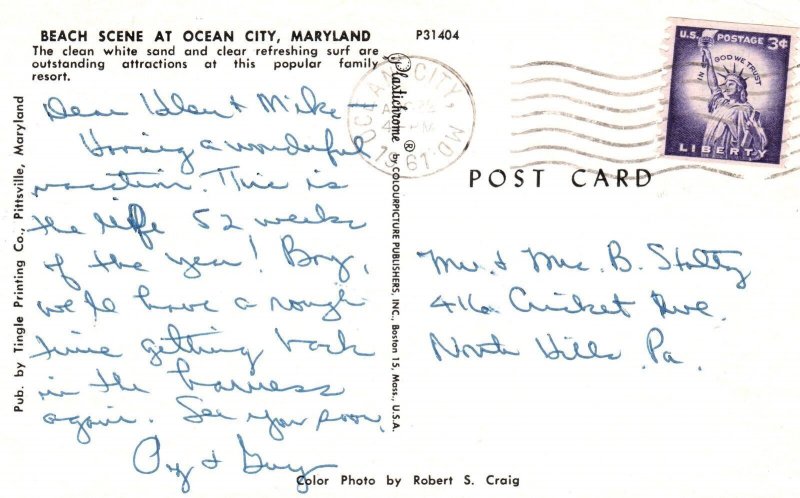 BEACH SCENE AT OCEAN CITY, MARYLAND
The clean white sand and clear refreshing surf are
outstanding attractions at this popular family
resort.
P31404
Dear Helen & Mike
Having a wonderful
vacation. This is
the life 52 weeks
of the year! Boy,
we'll have a rough
time getting back
in the harness
again. See you soon,
& Guy
Pub. by Tingle Printing Co., Pittsville, Maryland
Plastichrome ® by COLOURPICTURE PUBLISHERS, INC., Boston 15, Mass., U.S.A.
OCEAN CITY, MD.
PM
1961
U.S. POSTAGE 3¢
IN GOD WE TRUST
LIBERTY
POST CARD
Mr. & Mrs. B. Stoltz
416 Cricket Ave.
North Hills Pa.
Color Photo by Robert S. Craig